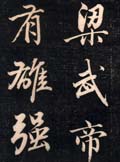 梁武帝
有雄强